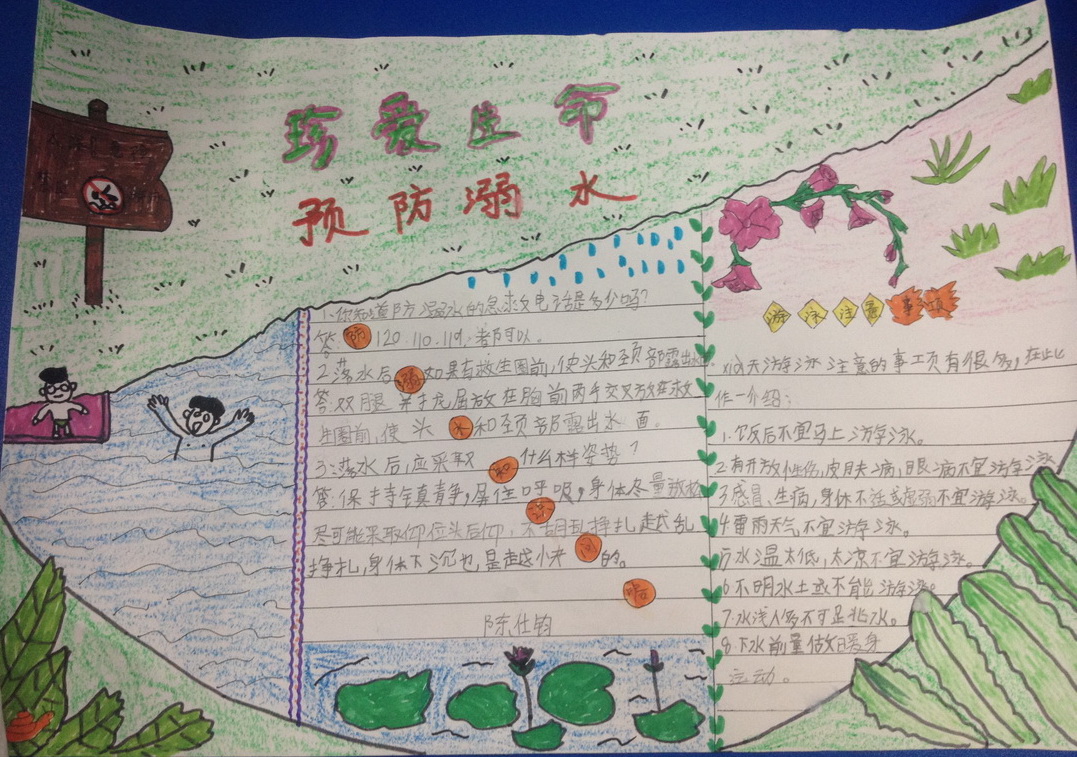 珍爱生命
预防溺水
1.你知道防溺水的急救电话是多少吗?
答: 120. 110. 119. 都可以。
2.落水后如果有救生圈前,使头和颈部露出水
答:双腿并拢屈放在胸前两手交叉放在救
生圈前,使头和颈部露出水面。
3.落水后,应采取什么样姿势?
答:保持镇静,屏住呼吸,身体尽量放松
尽可能采取仰位头后仰,不胡乱挣扎越乱
挣扎,身体下沉也是越快的。
防
溺
水
知
识
问
答
陈仕钧
游泳注意事项
夏天游泳注意的事项有很多,在此
作一介绍:
1.饭后不宜马上游泳。
2.有开放性伤,皮肤病,眼病不宜游泳
3.感冒、生病,身体不适或虚弱不宜游泳。
4.雷雨天气不宜游泳。
5.水温太低,太凉不宜游泳。
6.不明水土或不能游泳。
7.水浅人多不可是兆水。
8.下水前量做暖身
运动。